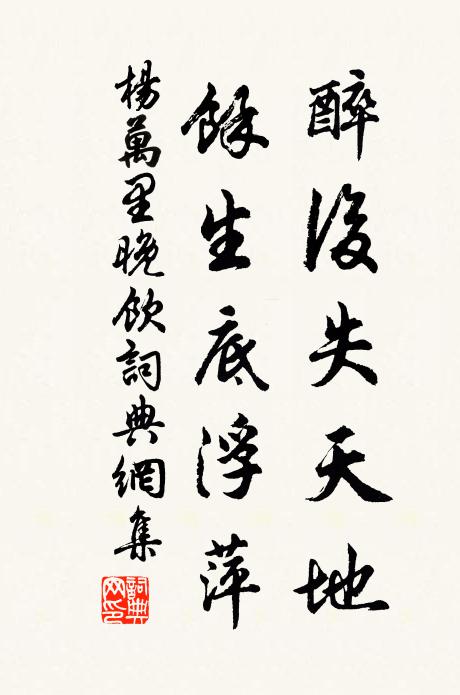 醉後失天地
餘生底浮萍
楊萬里晚飲詞典網集
詞典網印